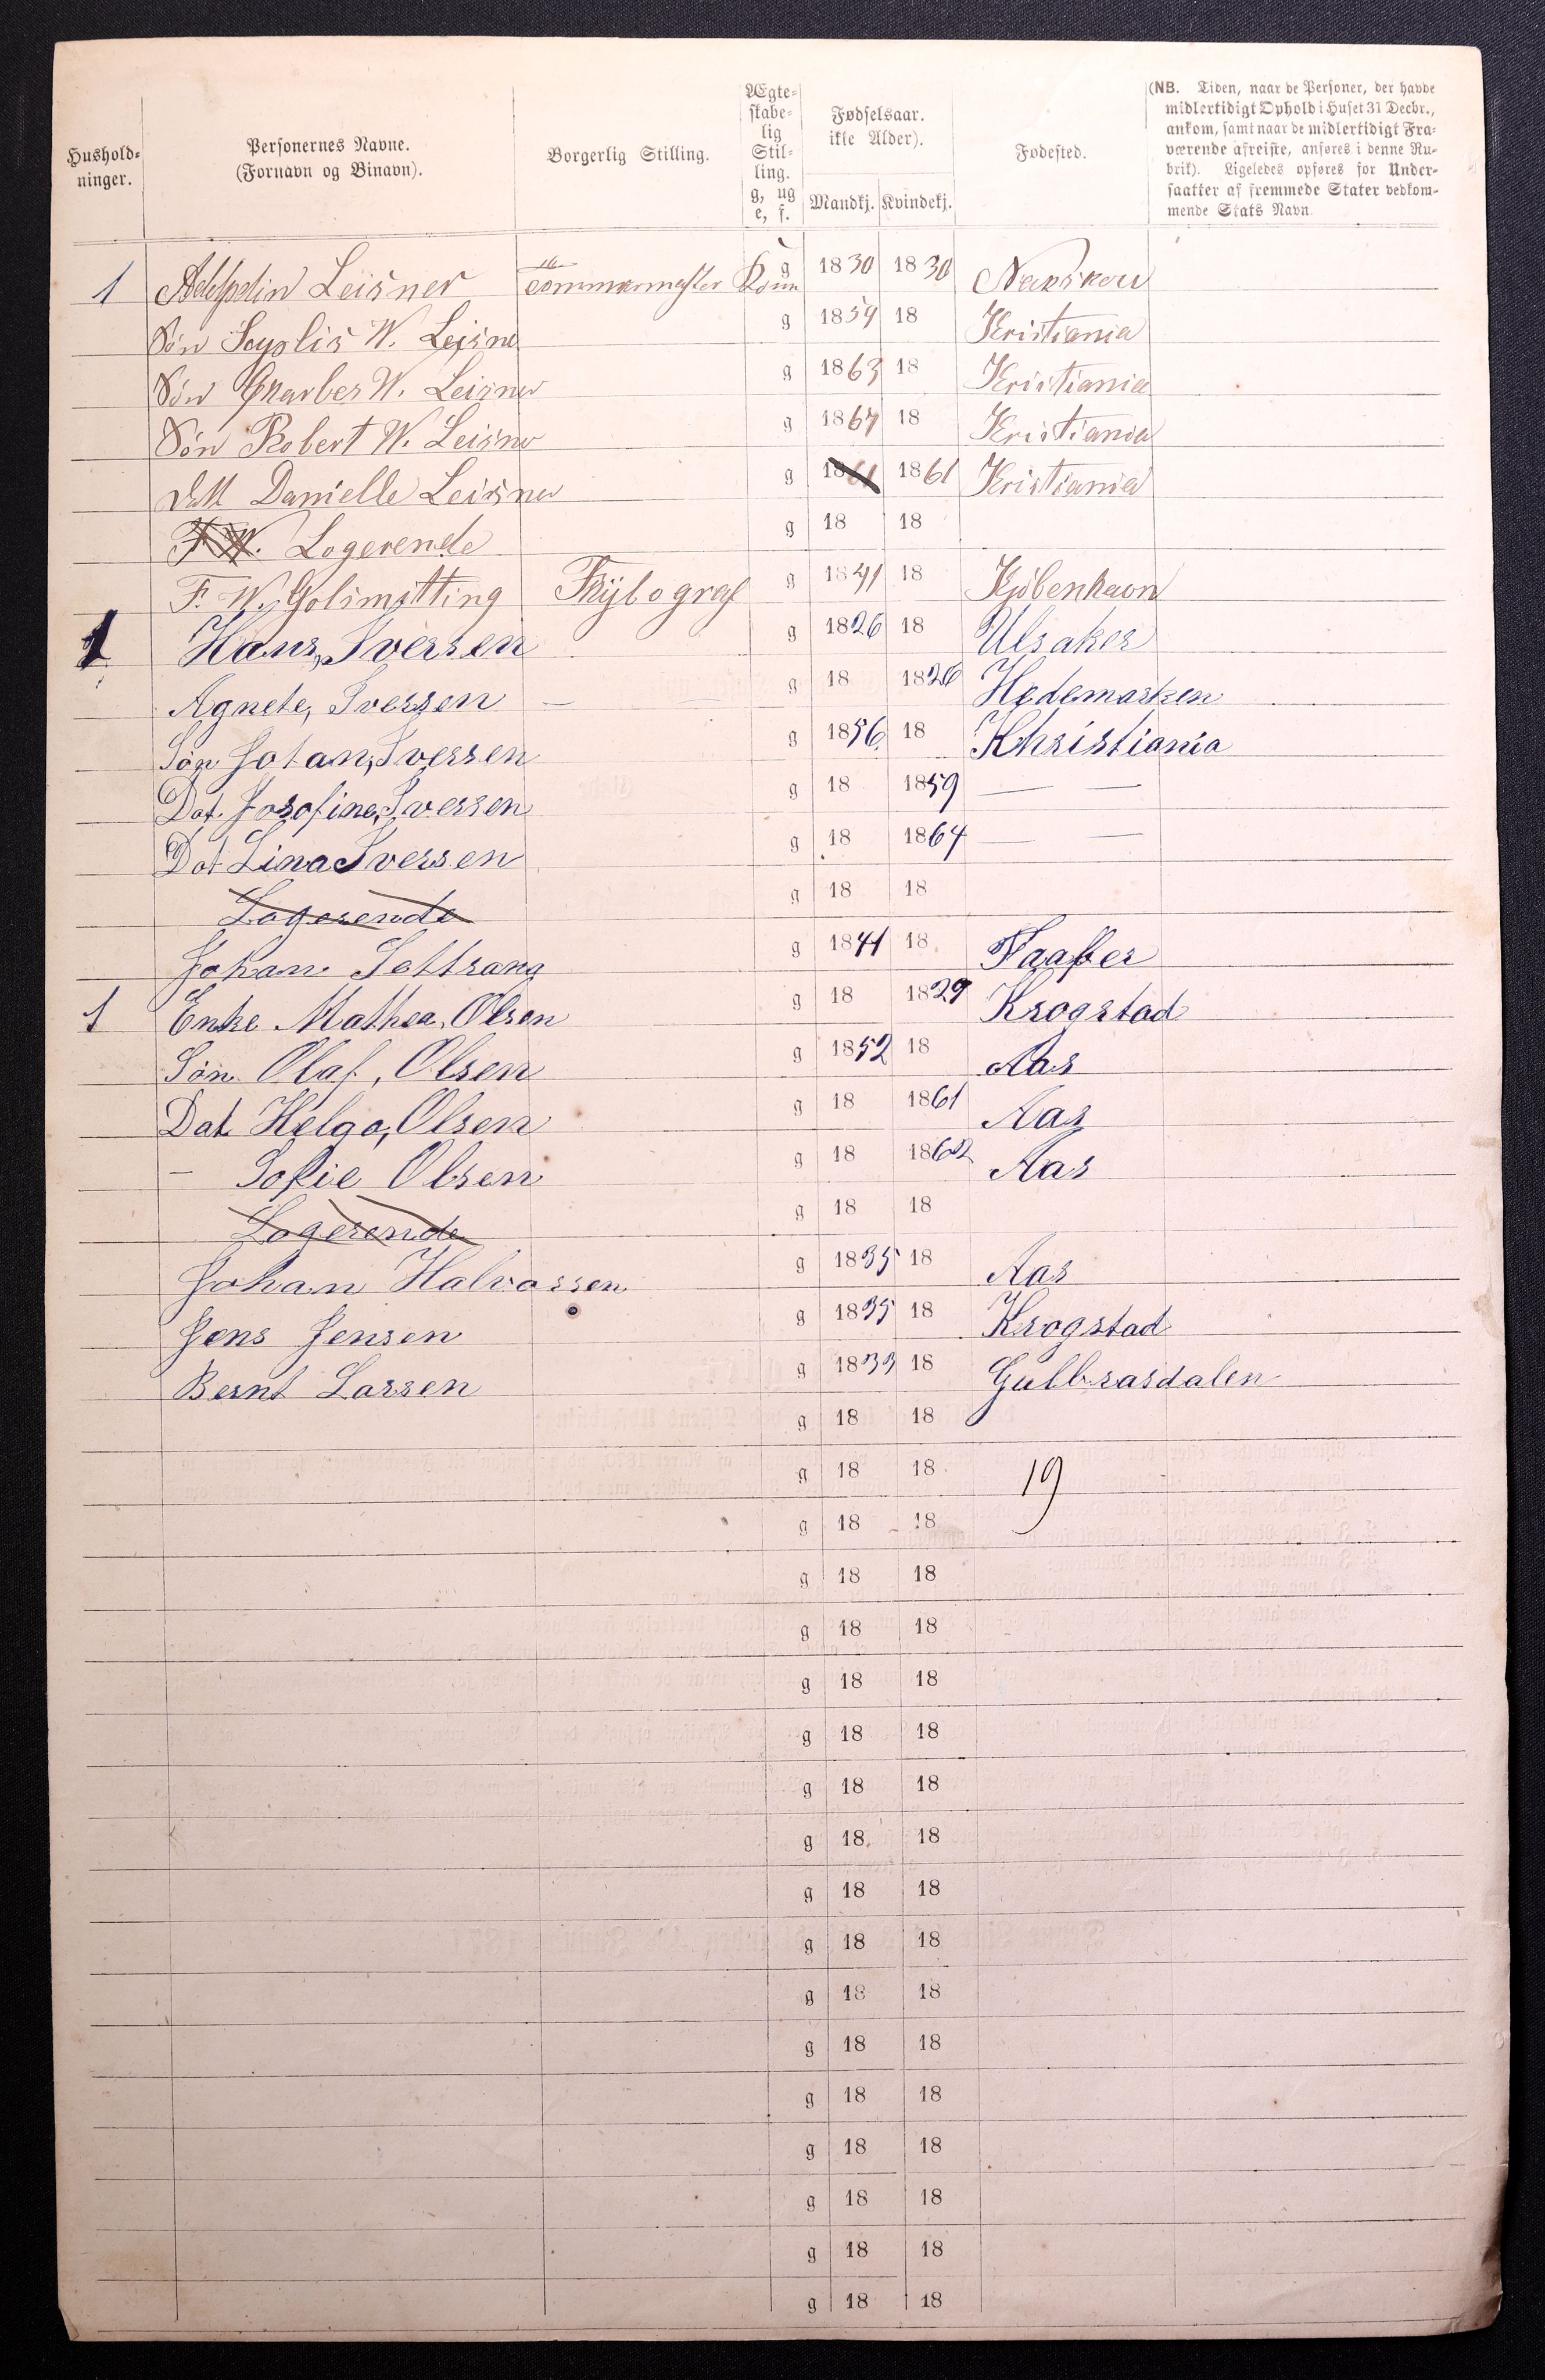 Hushold=
ninger.
Personernes Navne.
(Fornavn og Binavn).
Borgerlig Stilling.
Ægte=
skabe=
lig
Stil=
ling.
g, ug
e, f.
Fødselsaar.
ikke Alder).
Mandkj. Kvindekj.
Fødested.
(NB. Tiden, naar de Personer, der havde
midlertidigt Ophold i Huset 31 Decbr.,
ankom, samt naar de midlertidigt Fra=
værende afreiste, anføres i denne Ru=
brik). Ligeledes opføres for Under=
saatter af fremmede Stater vedkom=
mende Stats Navn.
1 Leisner Tömmermester g 1830 1830 Nakskou
Sön W. Leisne g 1859 18 Kristiania
Sön Charles W. Leisner g 1863 18 Kristiania
Sön Robert W. Leisner g 1867 18 Kristiania
Datt Danielle Leisner g 1861 1861 Kristiania
F W. Logerende g 18 18
F. W. Xÿlograf g 1841 18 Kjöbenhavn
1 Hans, Iversen g 1826 18 Ulsaker
Agnete, Iversen — g 18 1826 Hedemarken
Søn Johan, Iversen g 1856 18 Khristiania
Dat. Josofine, Iversen g 18 1859 — —
Dat Lina Iversen g 18 1864 — —
Logerende g 18 18
Johan g 1841 18
1 Enke Mathea, Olsen g 18 1829 Krogstad
Søn Olaf, Olsen g 1852 18 Aas
Dat Helga, Olsen g 18 1861 Aas
— Sofie Olsen g 18 1862 Aas
Logerende g 18 18
Johan Halvorsen g 1835 18 Aas
Jens Jensen g 1835 18 Krogstad
Bernt Larsen g 1833 18 Gulbrasdalen
g 18 18
g 18 18 19
g 18 18
g 18 18
g 18 18
g 18 18
g 18 18
g 18 18
g 18 18
g 18 18
g 18 18
g 18 18
g 18 18
g 18 18
g 18 18
g 18 18
g 18 18
g 18 18